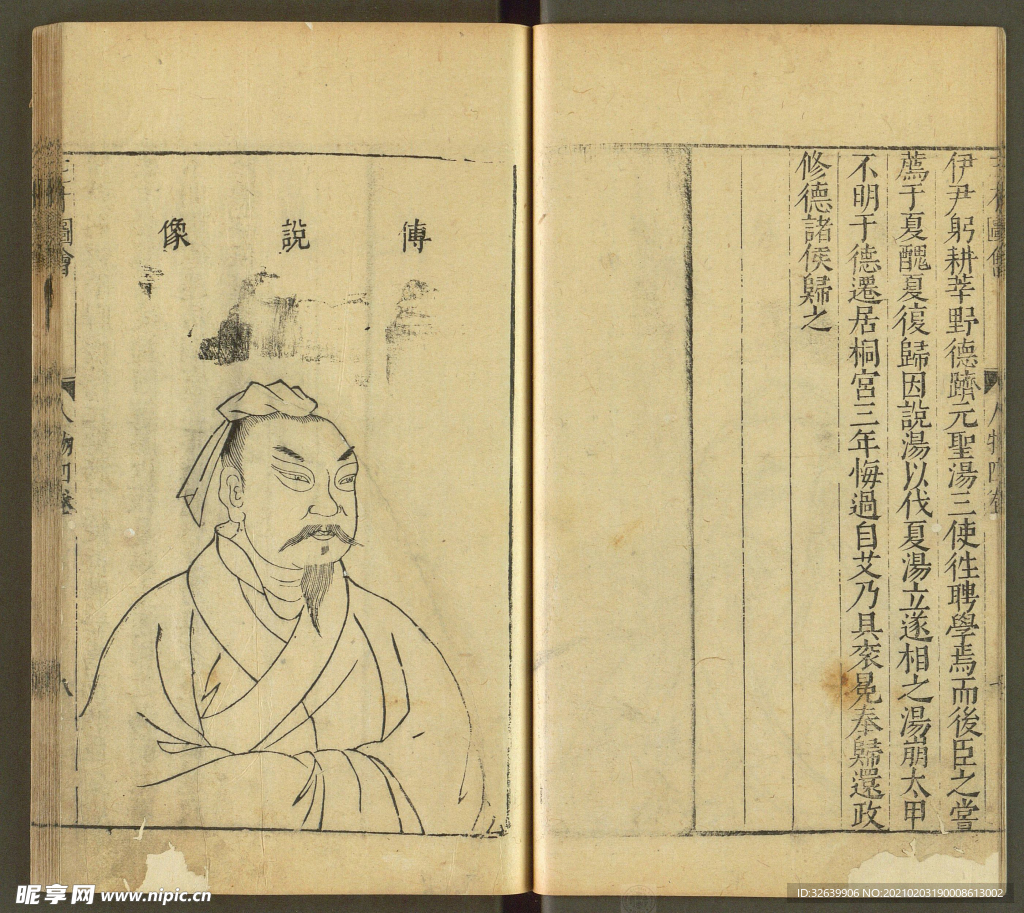 伊尹躬耕莘野德躋元聖湯三使徃聘學焉而後臣之嘗
薦于夏醜夏復歸因說湯以伐夏湯立遂相之湯崩太甲
不明于德遷居桐宮三年悔過自艾乃具衮冕奉歸還政
修德諸侯歸之
傳說像
圖會
人物四卷
昵享网 www.nipic.cn
ID:32639906 NO:20210203190008613002